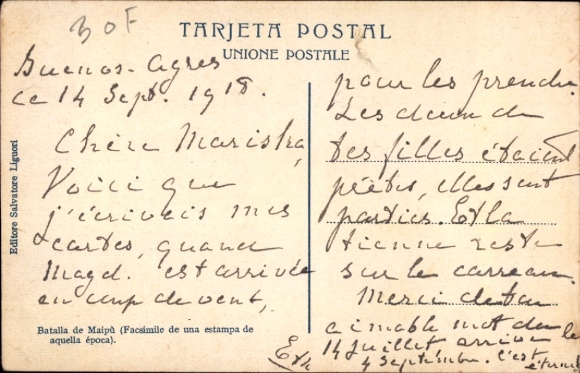 30F
TARJETA POSTAL
UNIONE POSTALE
Buenos-Ayres
ce 14 Sept. 1918.
Chère Mariska,
Voici que
j'écrivais mes
cartes, quand
Magd. est arrivée
en coup de vent,
pour les prendre.
Les deux de
tes filles étaient
prêtes, elles sont
parties. Et la
tienne reste
sur le carreau.
Merci de ton
aimable mot du
14 Juillet arrivé
4 Septembre. C'est
Editore Salvatore Liguori
Batalla de Maipù (Facsimile de una estampa de
aquella época).